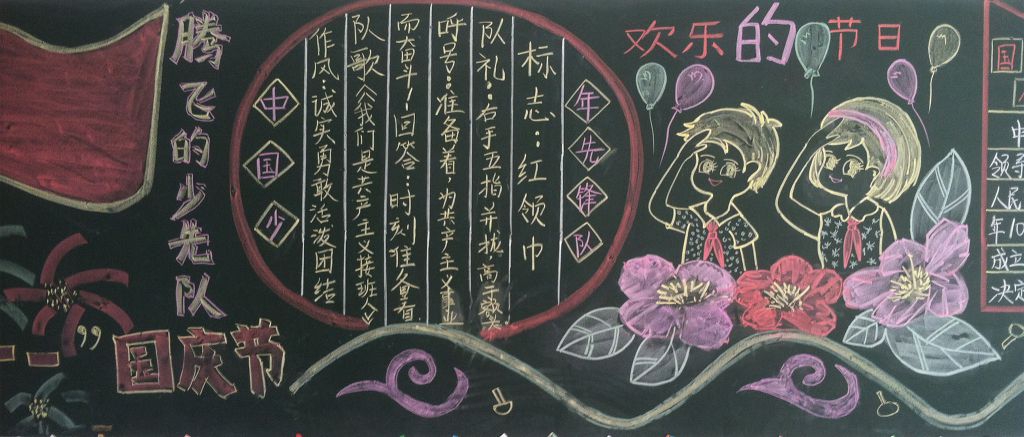 腾飞的少先队
“国庆节
中国少
年先锋队
标志:红领巾
队礼:右手五指并拢高
呼号:准备着,为共产主义事业
而奋斗!回答:时刻准备着
队歌《我们是共产主义接班人》
作风:诚实勇敢活泼团结
欢乐的节日
国
中
领导
人民
年10
成立
决定